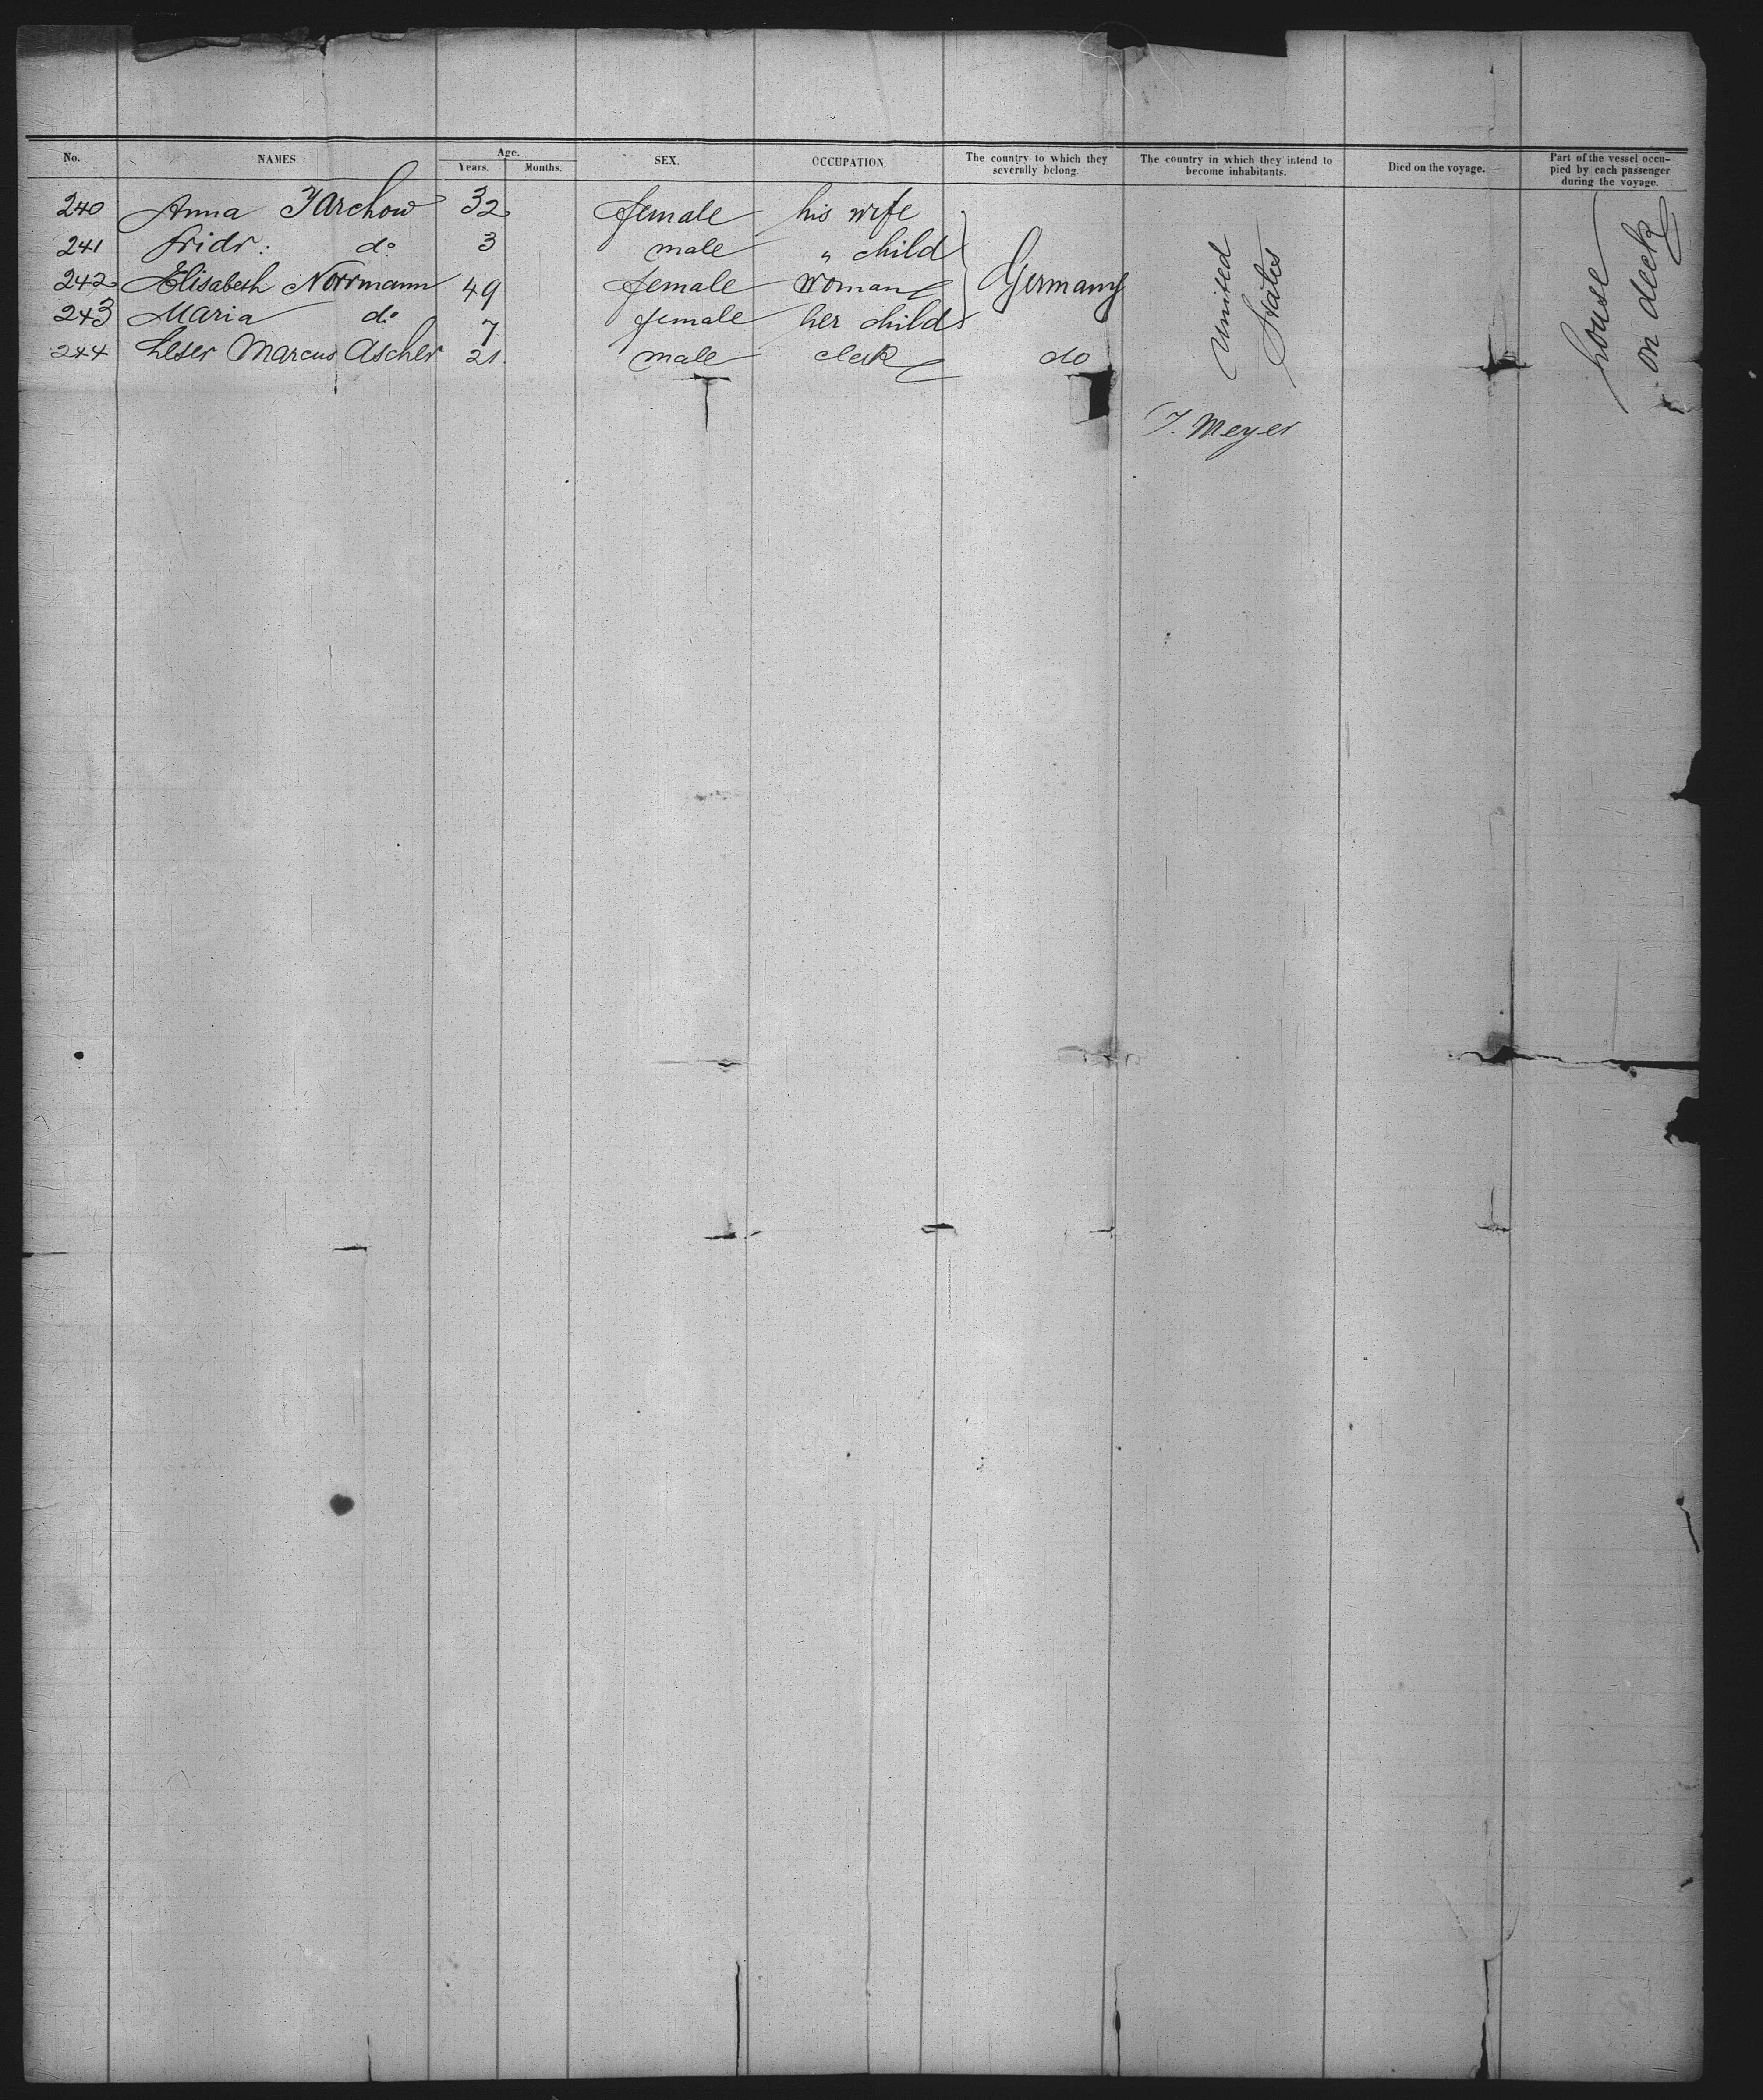 No. NAMES. Age. Years. Months. SEX. OCCUPATION. The country to which they severally belong. The country in which they intend to become inhabitants. Died on the voyage. Part of the vessel occupied by each passenger during the voyage.
240 Anna Jarchow 32 female his wife
241 Fridr: do 3 male " child
242 Elisabeth Norrmann 49 female woman Germany
243 Maria do 7 female her child
244 Leser Marcus Ascher 21 male clerk do
United States
house on deck
J. Meyer